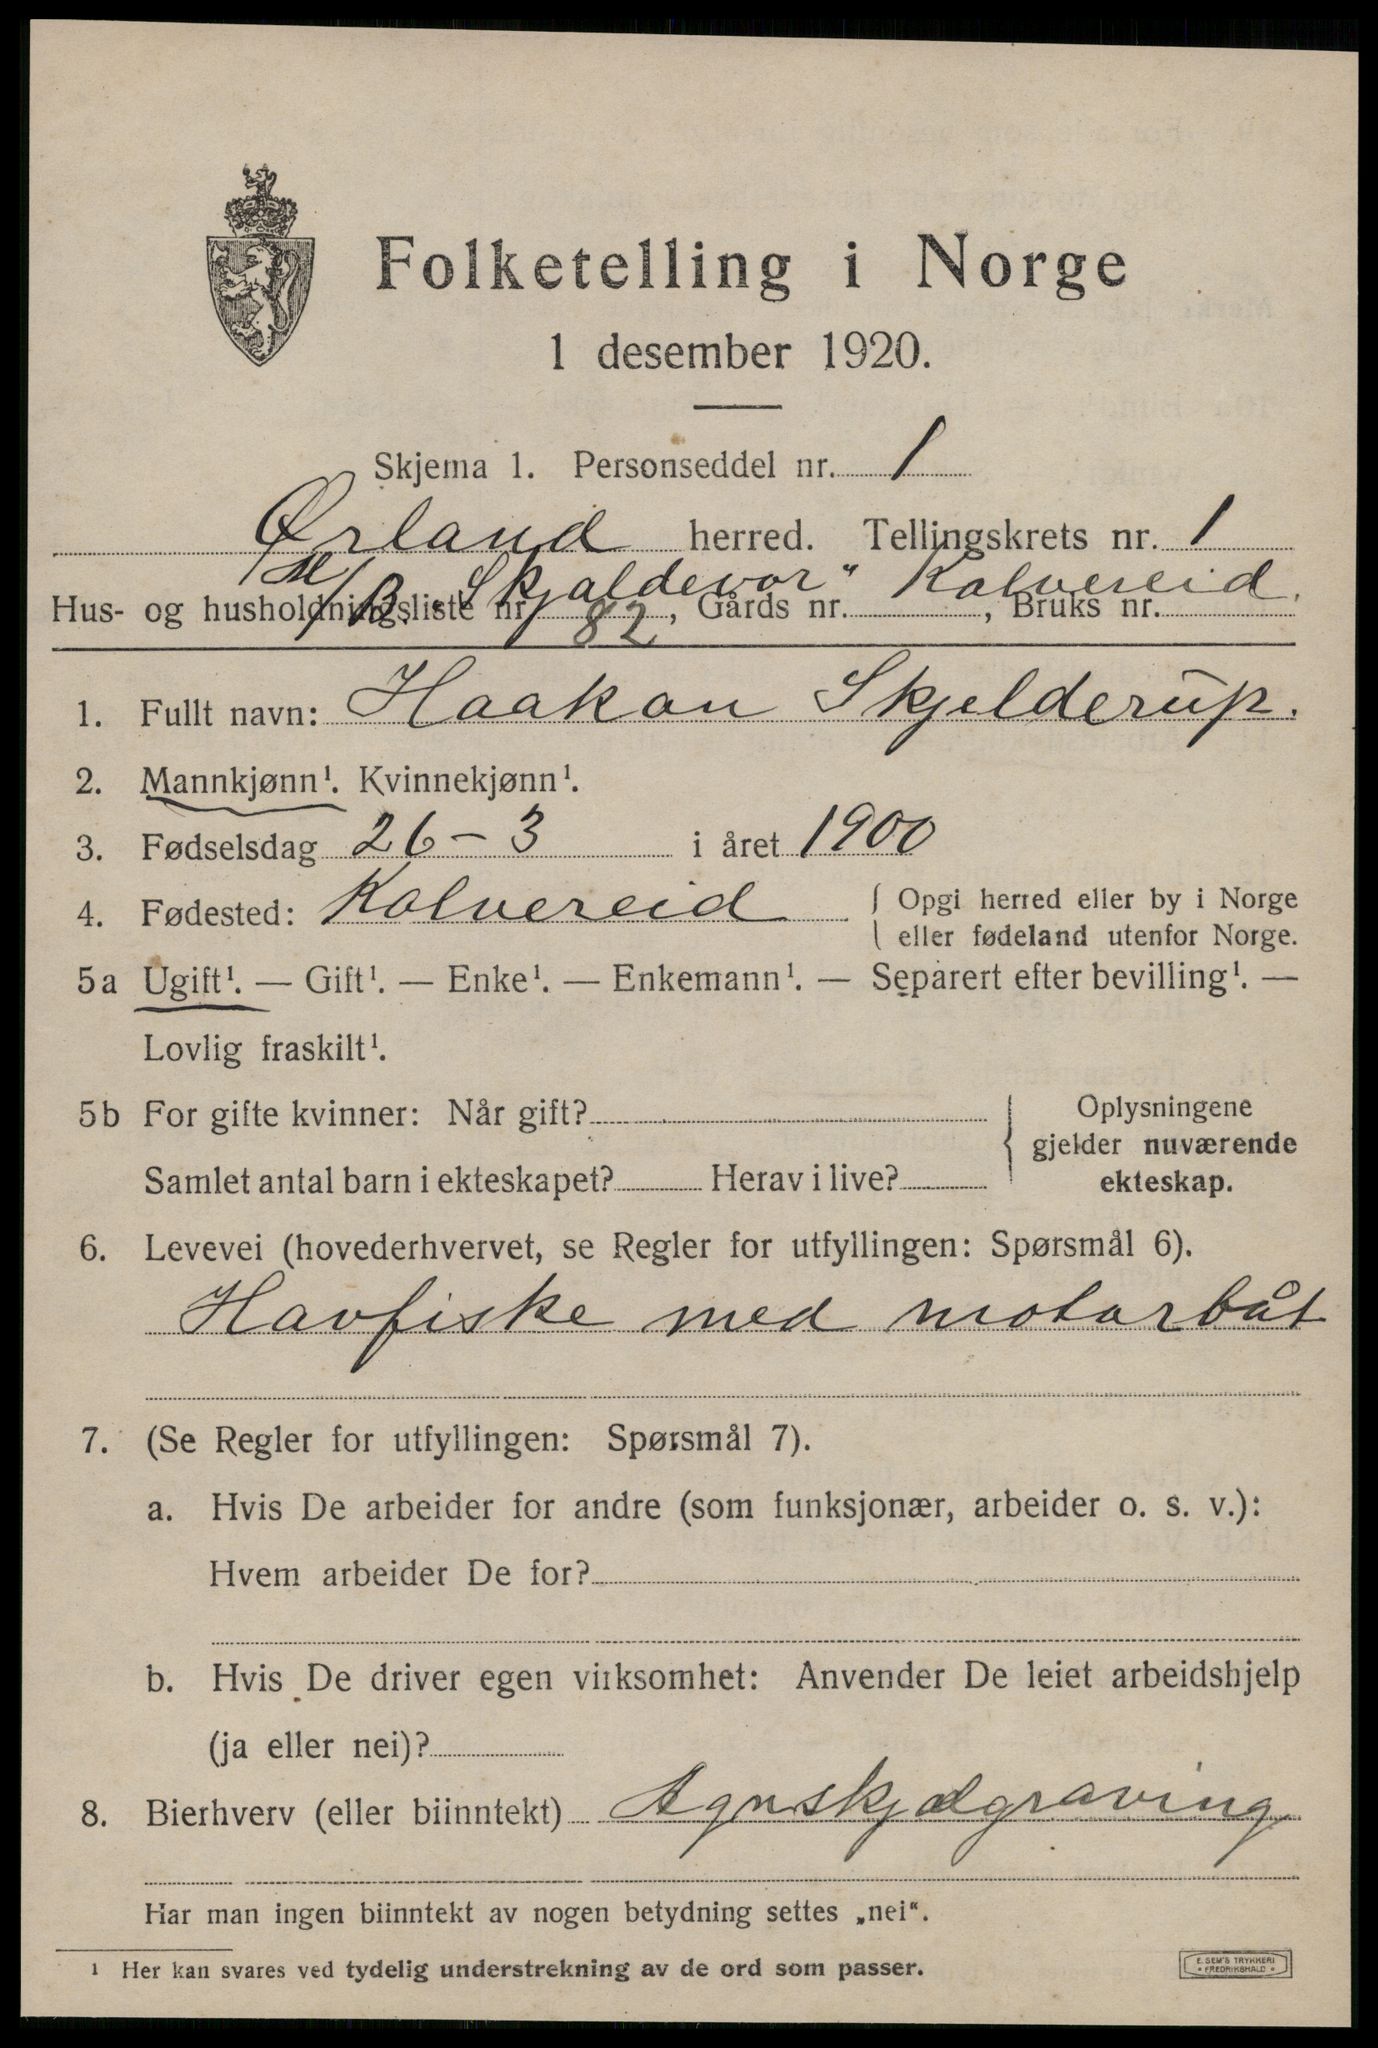 Folketelling i Norge
1 desember 1920.
Skjema 1. Personseddel nr. 1
Ørland herred. Tellingskrets nr. 1
M/B. „Skjaldevor" Kolvereid.
Hus- og husholdningsliste nr. 82, Gårds nr. , Bruks nr.
1. Fullt navn: Haakon Skjelderup.
2. Mannkjønn¹. Kvinnekjønn¹.
3. Fødselsdag 26-3 i året 1900
4. Fødested: Kolvereid { Opgi herred eller by i Norge
eller fødeland utenfor Norge.
5a Ugift¹. — Gift¹. — Enke¹. — Enkemann¹. — Separert efter bevilling¹. —
Lovlig fraskilt¹.
5b For gifte kvinner: Når gift?
Samlet antal barn i ekteskapet? Herav i live?
Oplysningene
gjelder nuværende
ekteskap.
6. Levevei (hovederhvervet, se Regler for utfyllingen: Spørsmål 6).
Havfiske med motorbåt
7. (Se Regler for utfyllingen: Spørsmål 7).
a. Hvis De arbeider for andre (som funksjonær, arbeider o. s. v.):
Hvem arbeider De for?
b. Hvis De driver egen virksomhet: Anvender De leiet arbeidshjelp
(ja eller nei)?
8. Bierhverv (eller biinntekt) Agnskjælgraving
Har man ingen biinntekt av nogen betydning settes „nei".
¹ Her kan svares ved tydelig understrekning av de ord som passer.
E. SEM'S TRYKKERI
• FREDRIKSHALD •